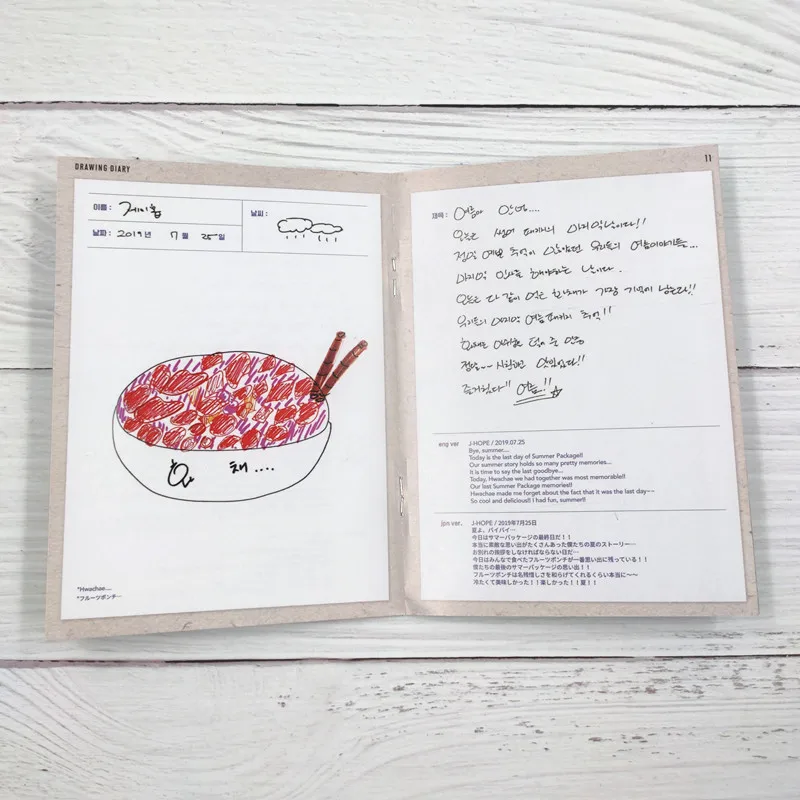 DRAWING DIARY
이름 : 제이홉
날씨 :
날짜 : 2019년 7월 25일
화 채....
*Hwachae....
*フルーツポンチ…
11
제목 : 여름아 안녕....
오늘은 썸머 패키지의 마지막날이다!!
정말 예쁜 추억이 많았던 우리들의 여름이야기들...
마지막 인사를 해야하는 날이다.
오늘은 다 같이 먹은 화채가 가장 기억에 남는다!!
우리들의 마지막 여름패키지 추억!!
화채는 아쉬움을 잊게 해 줄 만큼
정말~~ 시원하고 맛있었다!!
즐거웠다!! 여름!!
eng ver
J-HOPE / 2019.07.25
Bye, summer....
Today is the last day of Summer Package!!
Our summer story holds so many pretty memories....
It is time to say the last goodbye...
Today, Hwachae we had together was most memorable!!
Our last Summer Package memories!!
Hwachae made me forget about the fact that it was the last day~~
So cool and delicious!! I had fun, summer!!
jpn ver.
J-HOPE / 2019年7月25日
夏よ、バイバイ…
今日はサマーパッケージの最終日だ！！
本当に素敵な思い出がたくさんあった僕たちの夏のストーリー…
お別れの挨拶をしなければならない日だ…
今日はみんなで食べたフルーツポンチが一番思い出に残っている！！
僕たちの最後のサマーパッケージの思い出！！
フルーツポンチは名残惜しさを和らげてくれるくらい本当に〜〜
冷たくて美味しかった！！楽しかった！！夏！！